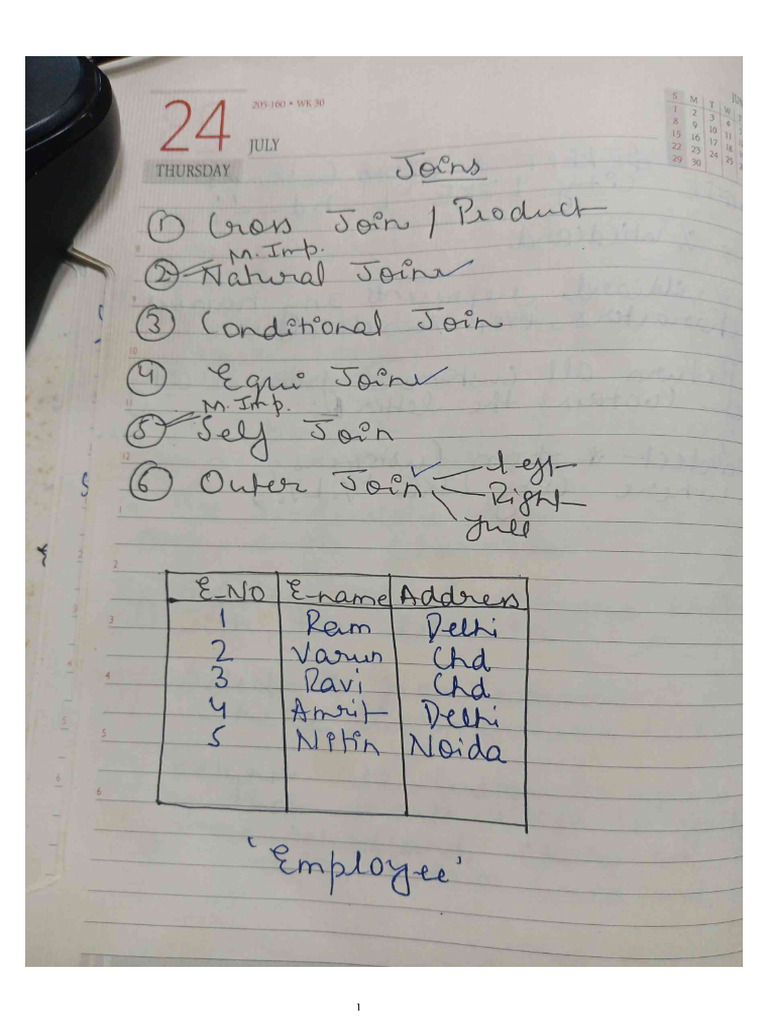 24
205-160 • WK 30
JULY
THURSDAY
S M T W
1 2 3 4
8 9 10 11
15 16 17 18
22 23 24 25
29 30
Joins
① Cross Join / Product
M. Imp.
② Natural Join ✓
③ Conditional Join
④ Equi Join ✓
M. Imp.
⑤ Self Join
⑥ Outer Join ✓ Left
Right
full
E_NO E-name Address
1 Ram Delhi
2 Varun Chd
3 Ravi Chd
4 Amrit Delhi
5 Nitin Noida
'Employee'
1